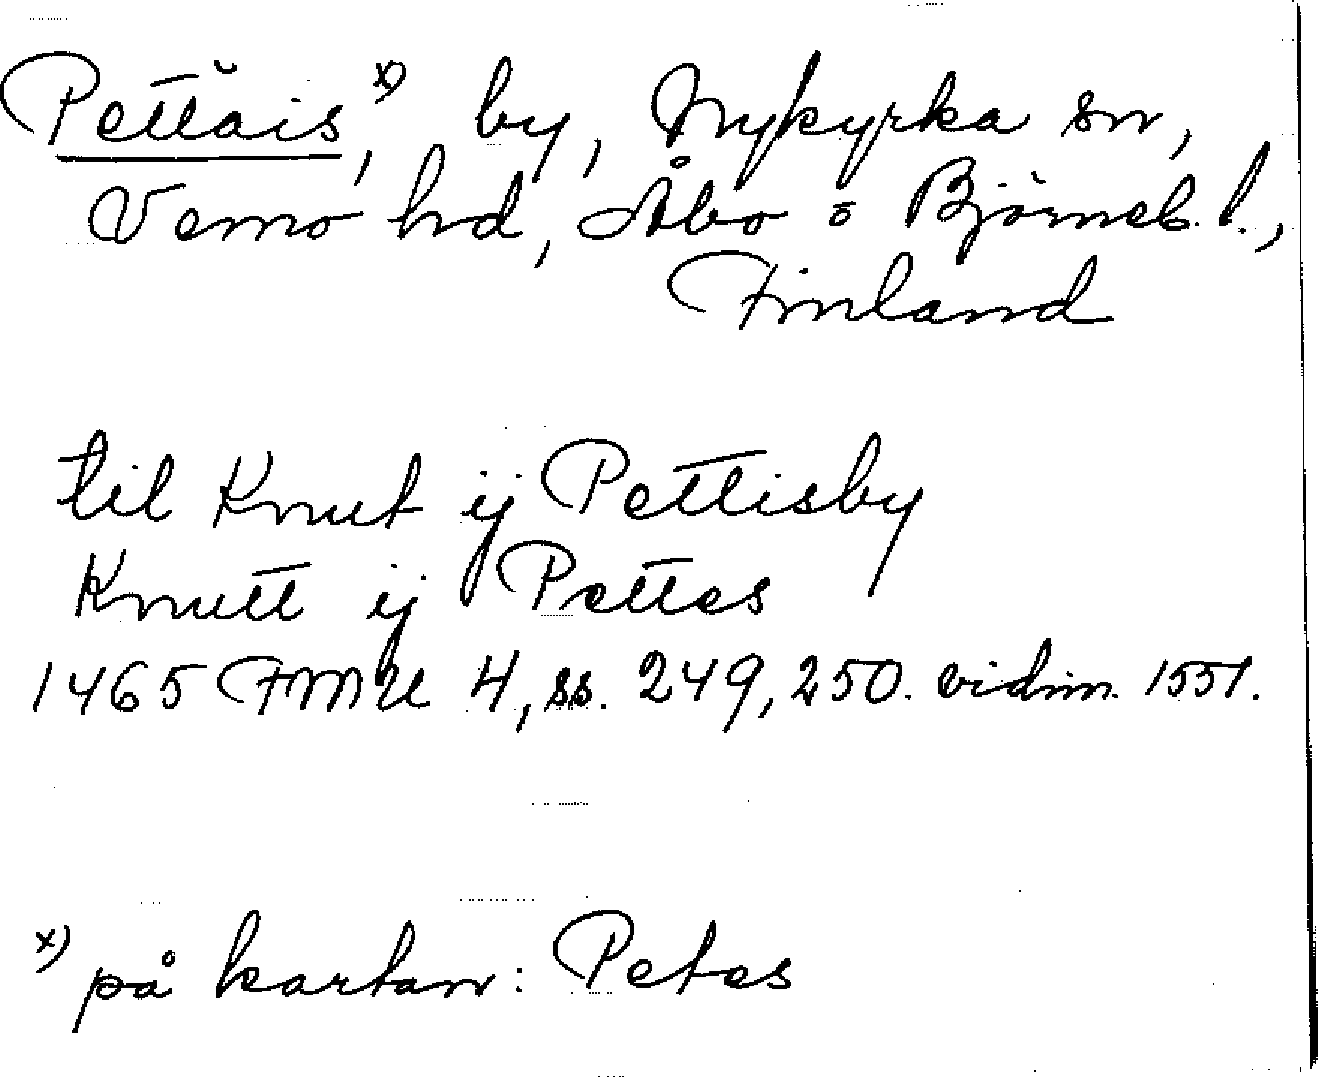 Pettäis x), by, Nykyrka sn,
Vemo hd, Åbo o Björneb. l.,
Finland
til Knut ij Pettisby
Knutt ij Pettes
1465 FMU 4, ss. 249, 250. vidim. 1551.
x) på kartan: Petes